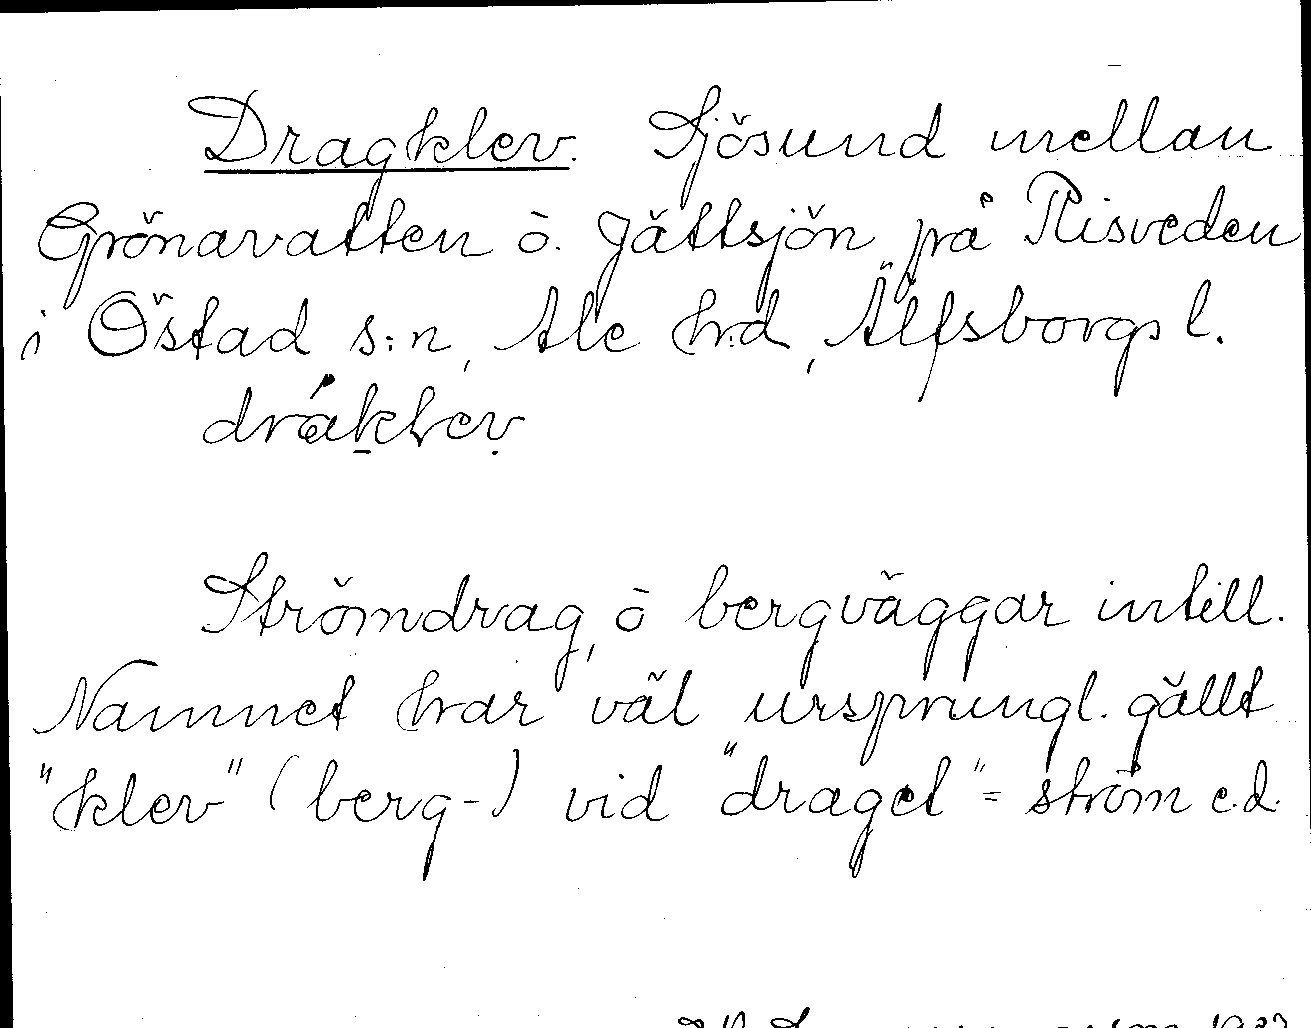 Dragklev. Sjösund mellan
Grönavatten o. Jättsjön på Risveden
i Östad s:n, Ale h:d, Älfsborgs l.
dráklev
Strömdrag, o bergväggar intill.
Namnet har väl ursprungl. gällt
"klev" (berg-) vid "draget" = ström e.d.